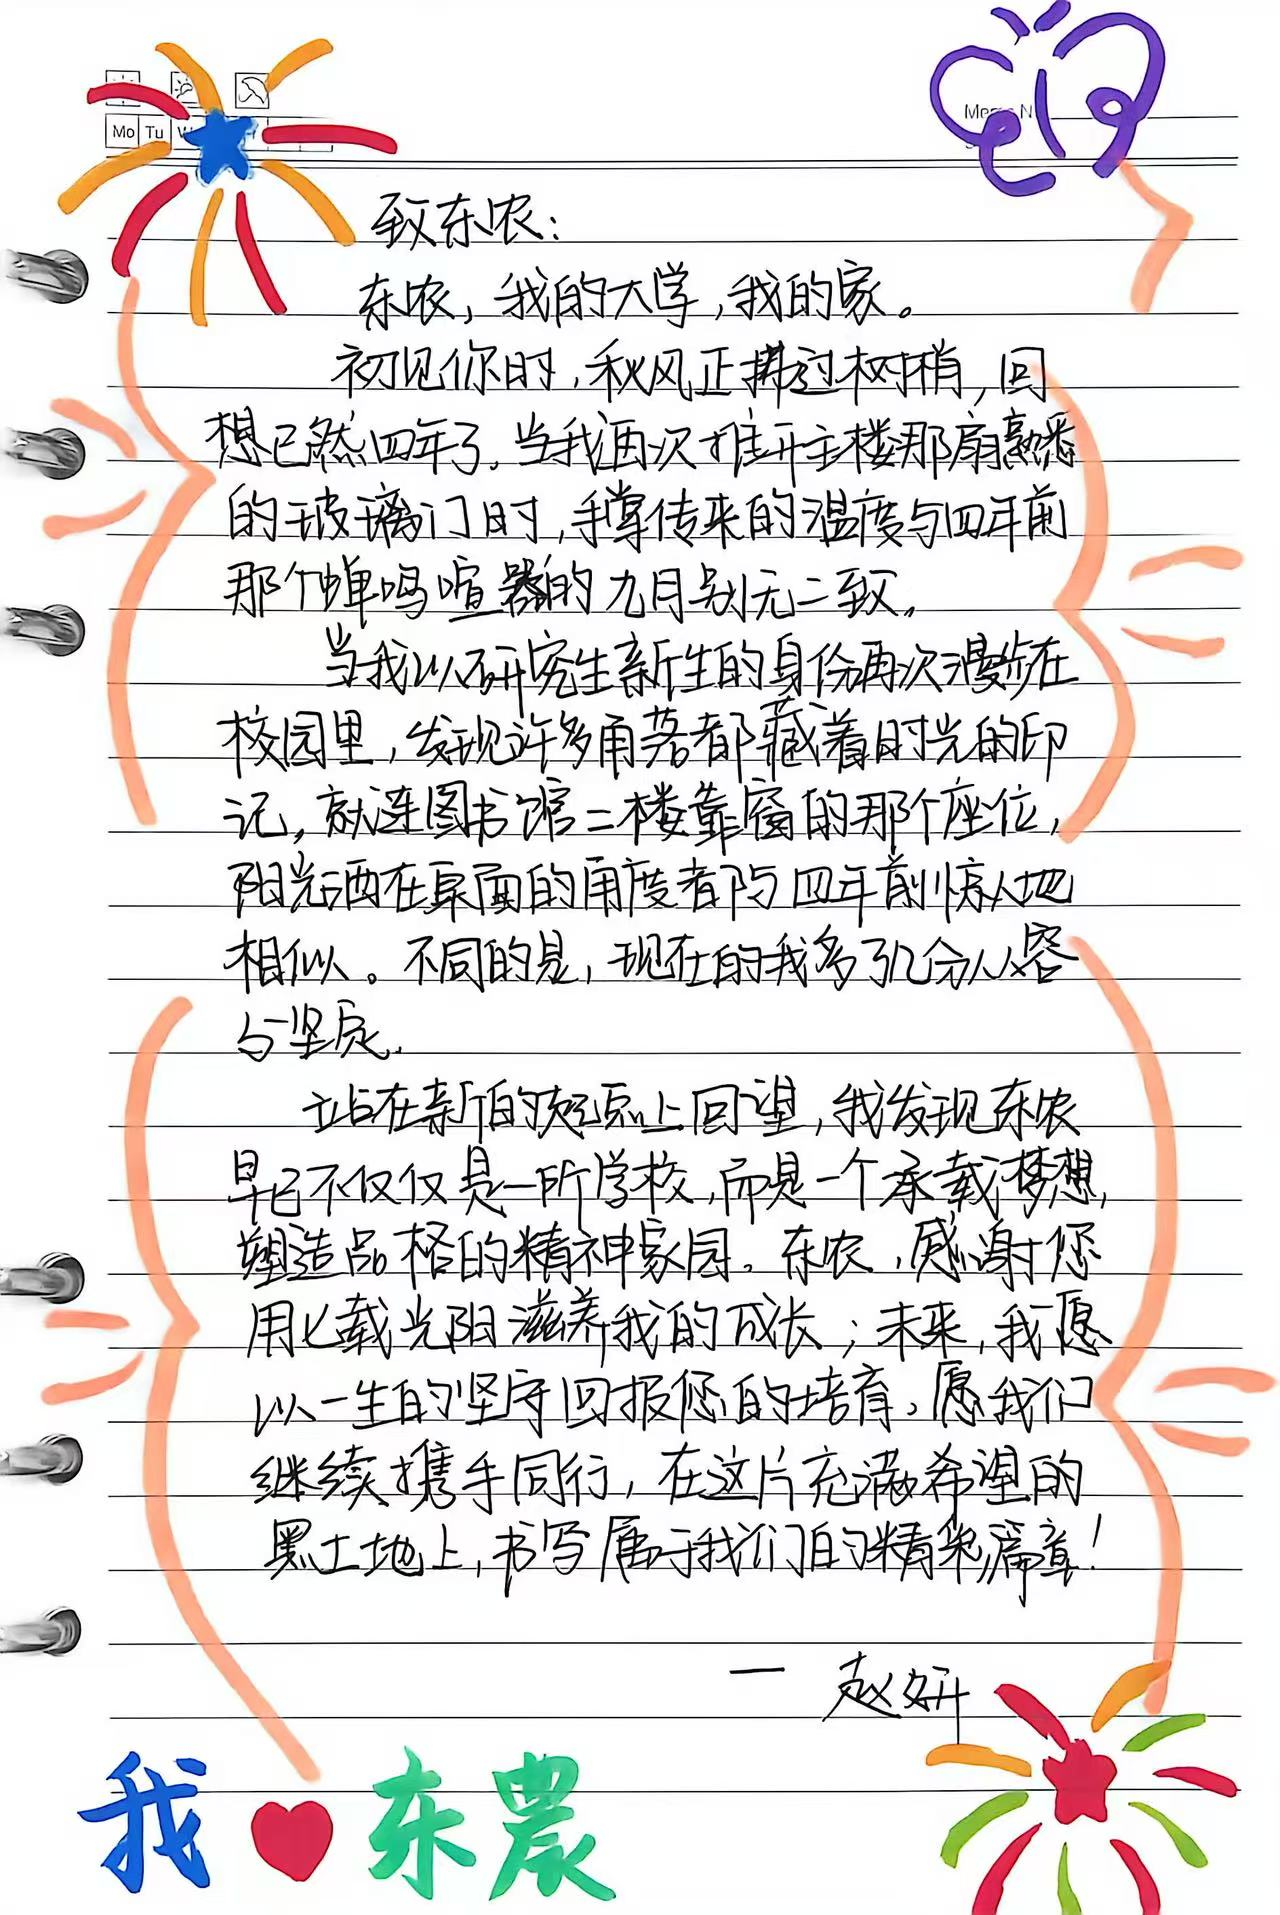 Mo Tu
致东农：
东农，我的大学，我的家。
初见你时，秋风正拂过树梢，回
想已然四年了。当我再次推开主楼那扇熟悉
的玻璃门时，手掌传来的温度与四年前
那个蝉鸣喧嚣的九月别无二致。
当我以研究生新生的身份再次漫步在
校园里，发现许多角落都藏着时光的印
记，就连图书馆二楼靠窗的那个座位，
阳光洒在桌面的角度都与四年前惊人地
相似。不同的是，现在的我多了几分从容
与坚定。
站在新的起点上回望，我发现东农
早已不仅仅是一所学校，而是一个承载梦想，
塑造品格的精神家园。东农，感谢您
用七载光阴滋养我的成长；未来，我愿
以一生的坚守回报您的培育。愿我们
继续携手同行，在这片充满希望的
黑土地上，书写属于我们的精彩篇章！
— 赵妍
我❤东農